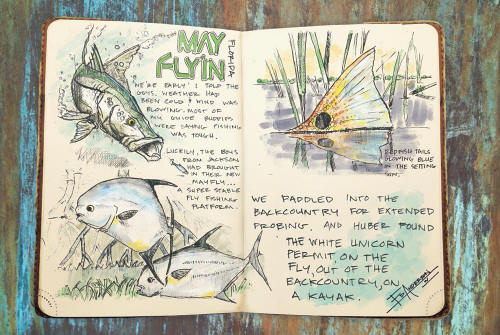 MAY
FLYIN
FLORIDA
"WE'RE EARLY" I TOLD THE
GUYS. WEATHER HAD
BEEN COLD & WIND WAS
BLOWING. MOST OF
MY GUIDE BUDDIES
WERE SAYING FISHING
WAS TOUGH.
LUCKILY, THE BOYS
FROM JACKSON
HAD BROUGHT
IN THEIR NEW
MAYFLY...
A SUPER STABLE
FLY FISHING
PLATFORM.
REDFISH TAILS
GLOWING BLUE
IN THE SETTING
SUN.
WE PADDLED INTO THE
BACKCOUNTRY FOR EXTENDED
PROBING. AND HUBER FOUND
THE WHITE UNICORN
PERMIT, ON THE
FLY, OUT OF THE
BACKCOUNTRY, ON
A KAYAK.